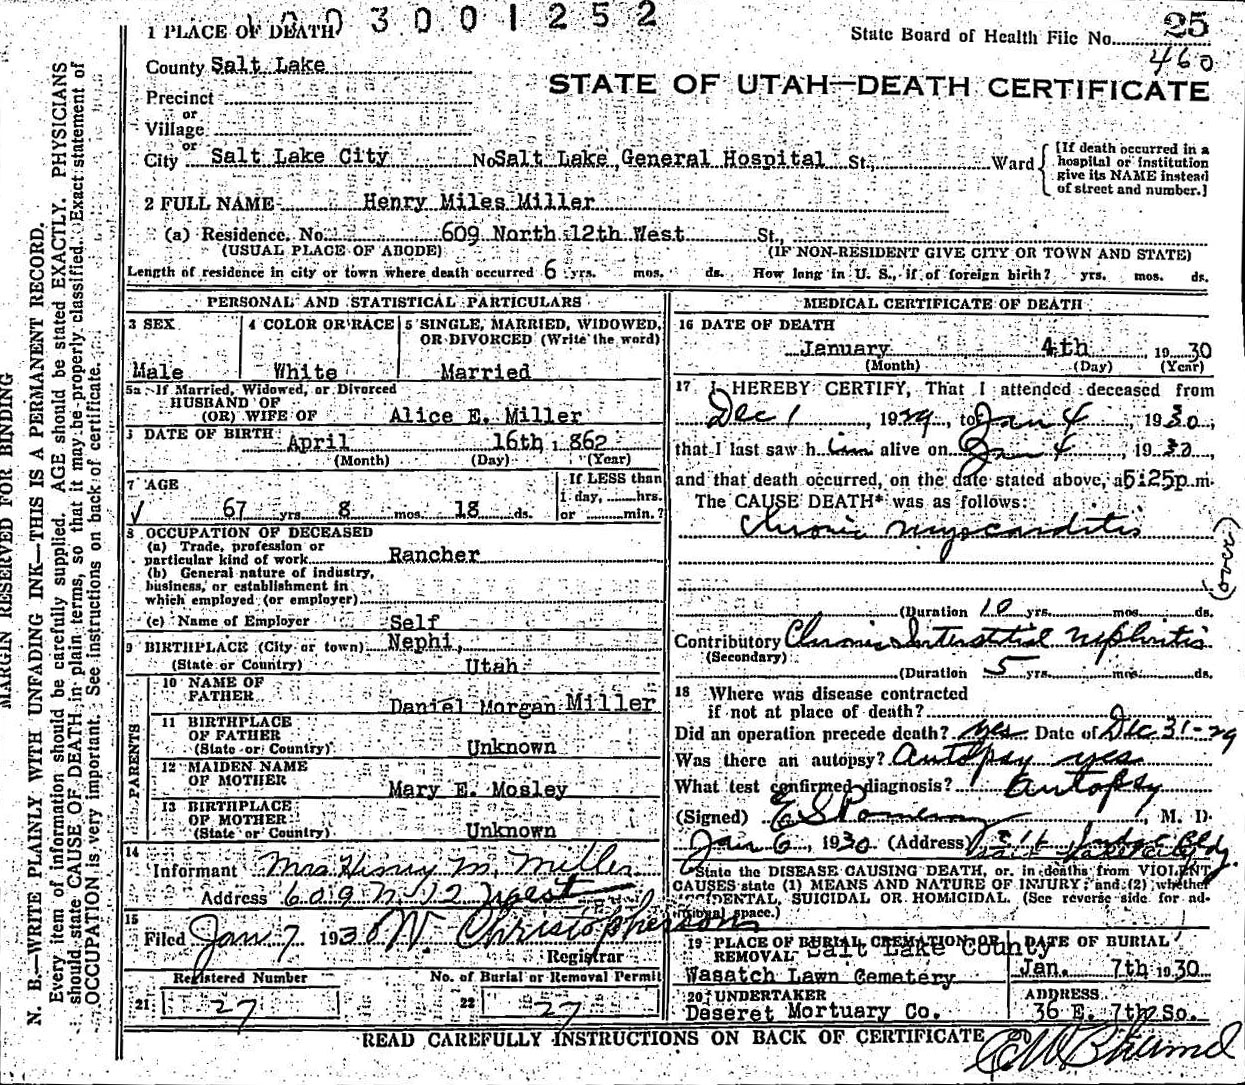 003001252
25
1 PLACE OF DEATH
State Board of Health File No.
460
County Salt Lake
STATE OF UTAH—DEATH CERTIFICATE
Precinct
or
Village
or
City Salt Lake City No Salt Lake General Hospital St., Ward
[If death occurred in a hospital or institution give its NAME instead of street and number.]
2 FULL NAME Henry Miles Miller
(a) Residence. No. 609 North 12th West St.,
(USUAL PLACE OF ABODE) (IF NON-RESIDENT GIVE CITY OR TOWN AND STATE)
Length of residence in city or town where death occurred 6 yrs. mos. ds. How long in U. S., if of foreign birth? yrs. mos. ds.
PERSONAL AND STATISTICAL PARTICULARS
3 SEX
Male
4 COLOR OR RACE
White
5 SINGLE, MARRIED, WIDOWED, OR DIVORCED (Write the word)
Married
5a If Married, Widowed, or Divorced
HUSBAND OF
(OR) WIFE OF Alice E. Miller
DATE OF BIRTH April 16th 1862
(Month) (Day) (Year)
7 AGE
67 yrs 8 mos. 18 ds.
If LESS than
1 day, hrs.
or min.?
8 OCCUPATION OF DECEASED
(a) Trade, profession or
particular kind of work Rancher
(b) General nature of industry,
business, or establishment in
which employed (or employer)
(c) Name of Employer Self
9 BIRTHPLACE (City or town) Nephi,
(State or Country) Utah
PARENTS
10 NAME OF
FATHER Daniel Morgan Miller
11 BIRTHPLACE
OF FATHER
(State or Country) Unknown
12 MAIDEN NAME
OF MOTHER Mary E. Mosley
13 BIRTHPLACE
OF MOTHER
(State or Country) Unknown
14
Informant Mrs Henry M. Miller
Address 609 N. 12 West
15
Filed Jan 7 1930 W. Christopherson
Registrar
Registered Number No. of Burial or Removal Permit
21 27 22 27
MEDICAL CERTIFICATE OF DEATH
16 DATE OF DEATH
January 4th, 1930
(Month) (Day) (Year)
17 I HEREBY CERTIFY, That I attended deceased from
Dec 1 1929, to Jan 4, 1930,
that I last saw him alive on Jan 4, 1930,
and that death occurred, on the date stated above, a 5:25p m.
The CAUSE DEATH* was as follows:
Chronic myocarditis
(over)
(Duration 10 yrs. mos. ds.
Contributory Chronic Interstitial nephritis
(Secondary)
(Duration 5 yrs. mos. ds.
18 Where was disease contracted
if not at place of death?
Did an operation precede death? yes Date of Dec 31-29
Was there an autopsy? Autopsy yes
What test confirmed diagnosis? Autopsy
(Signed) M. D.
Jan 6, 1930 (Address) Judge Bldg.
State the DISEASE CAUSING DEATH, or, in deaths from VIOLENT
CAUSES state (1) MEANS AND NATURE OF INJURY; and (2) whether
ACCIDENTAL, SUICIDAL OR HOMICIDAL. (See reverse side for additional space.)
19 PLACE OF BURIAL CREMATION OR
REMOVAL Salt Lake County
Wasatch Lawn Cemetery
DATE OF BURIAL
Jan. 7th 1930
20 UNDERTAKER
Deseret Mortuary Co.
ADDRESS
36 E. 7th So.
READ CAREFULLY INSTRUCTIONS ON BACK OF CERTIFICATE
MARGIN RESERVED FOR BINDING
N. B.—WRITE PLAINLY WITH UNFADING INK—THIS IS A PERMANENT RECORD.
Every item of information should be carefully supplied. AGE should be stated EXACTLY. PHYSICIANS
should state CAUSE OF DEATH in plain terms, so that it may be properly classified. Exact statement of
OCCUPATION is very important. See instructions on back of certificate.